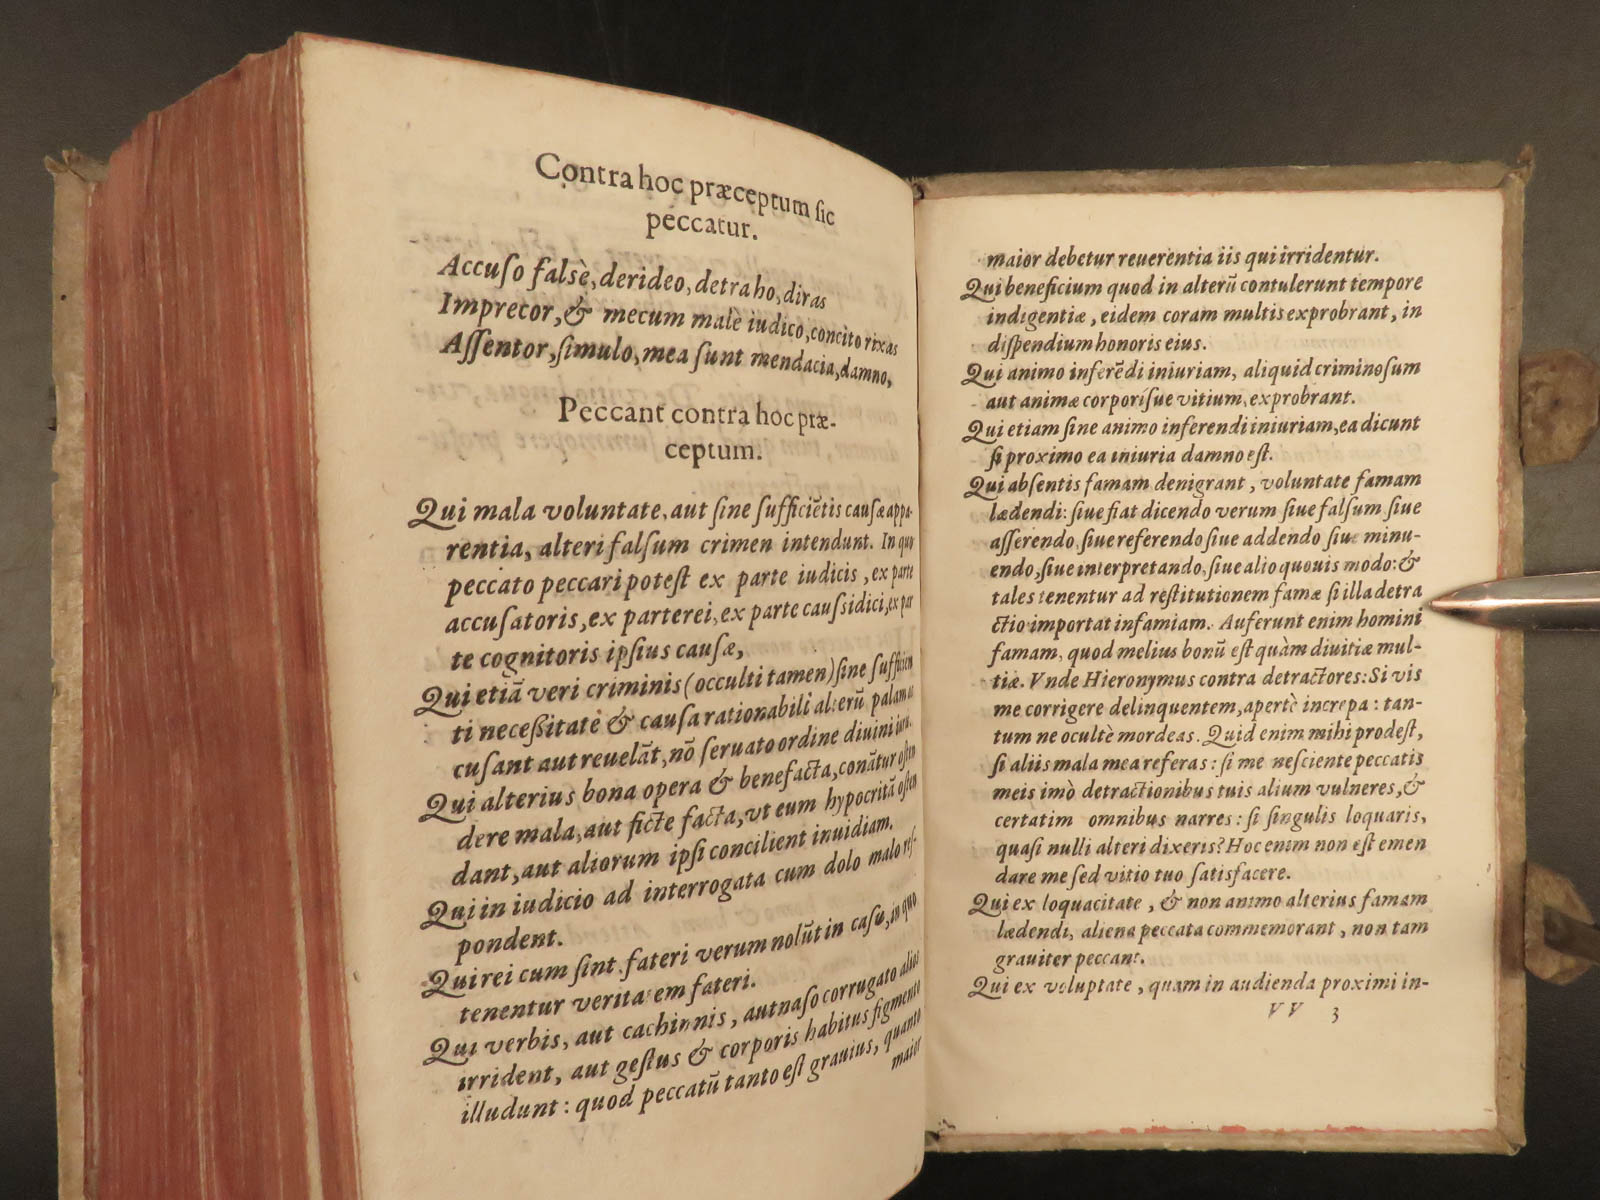 Contra hoc præceptum ſic
peccatur.
Accuſo falsè, derideo, detraho, diras
Imprecor, & mecum malè iudico, concito rixas
Aſſentor, ſimulo, mea ſunt mendacia, damno,
Peccant contra hoc præ-
ceptum.
Qui mala voluntate, aut ſine ſufficiētis cauſæ appa-
rentia, alteri falſum crimen intendunt. In quo
peccato peccari poteſt ex parte iudicis, ex parte
accuſatoris, ex parte rei, ex parte cauſſidici, ex par
te cognitoris ipſius cauſæ,
Qui etiā veri criminis (occulti tamen) ſine ſufficien
ti neceßitate & cauſa rationabili alterū palam ac
cuſant aut reuelāt, nō ſeruato ordine diuini iuris.
Qui alterius bona opera & benefacta, conātur oſten
dere mala, aut ficte facta, vt eum hypocritā oſten
dant, aut aliorum ipſi concilient inuidiam.
Qui in iudicio ad interrogata cum dolo malo reſ-
pondent.
Qui rei cum ſint fateri verum nolūt in caſu, in quo
tenentur veritatem fateri.
Qui verbis, aut cachinnis, aut naſo corrugato alios
irrident, aut geſtus & corporis habitus figmento
illudunt: quod peccatū tanto eſt grauius, quanto
maior
maior debetur reuerentia iis qui irridentur.
Qui beneficium quod in alterū contulerunt tempore
indigentiæ, eidem coram multis exprobrant, in
diſpendium honoris eius.
Qui animo inferēdi iniuriam, aliquid criminoſum
aut animæ corporiſue vitium, exprobrant.
Qui etiam ſine animo inferendi iniuriam, ea dicunt
ſi proximo ea iniuria damno eſt.
Qui abſentis famam denigrant, voluntate famam
lædendi: ſiue fiat dicendo verum ſiue falſum ſiue
aſſerendo ſiue referendo ſiue addendo ſiue minu-
endo, ſiue interpretando, ſiue alio quouis modo: &
tales tenentur ad reſtitutionem famæ ſi illa detra
ctio importat infamiam. Auferunt enim homini
famam, quod melius bonū eſt quàm diuitiæ mul-
tiæ. Vnde Hieronymus contra detractores: Si vis
me corrigere delinquentem, apertè increpa: tan-
tum ne ocultè mordeas. Quid enim mihi prodeſt,
ſi aliis mala mea referas: ſi me neſciente peccatis
meis imò detractionibus tuis alium vulneres, &
certatim omnibus narres: ſi ſingulis loquaris,
quaſi nulli alteri dixeris? Hoc enim non eſt emen
dare me ſed vitio tuo ſatisfacere.
Qui ex loquacitate, & non animo alterius famam
lædendi, aliena peccata commemorant, non tam
grauiter peccant.
Qui ex voluptate, quam in audienda proximi in-
VV 3